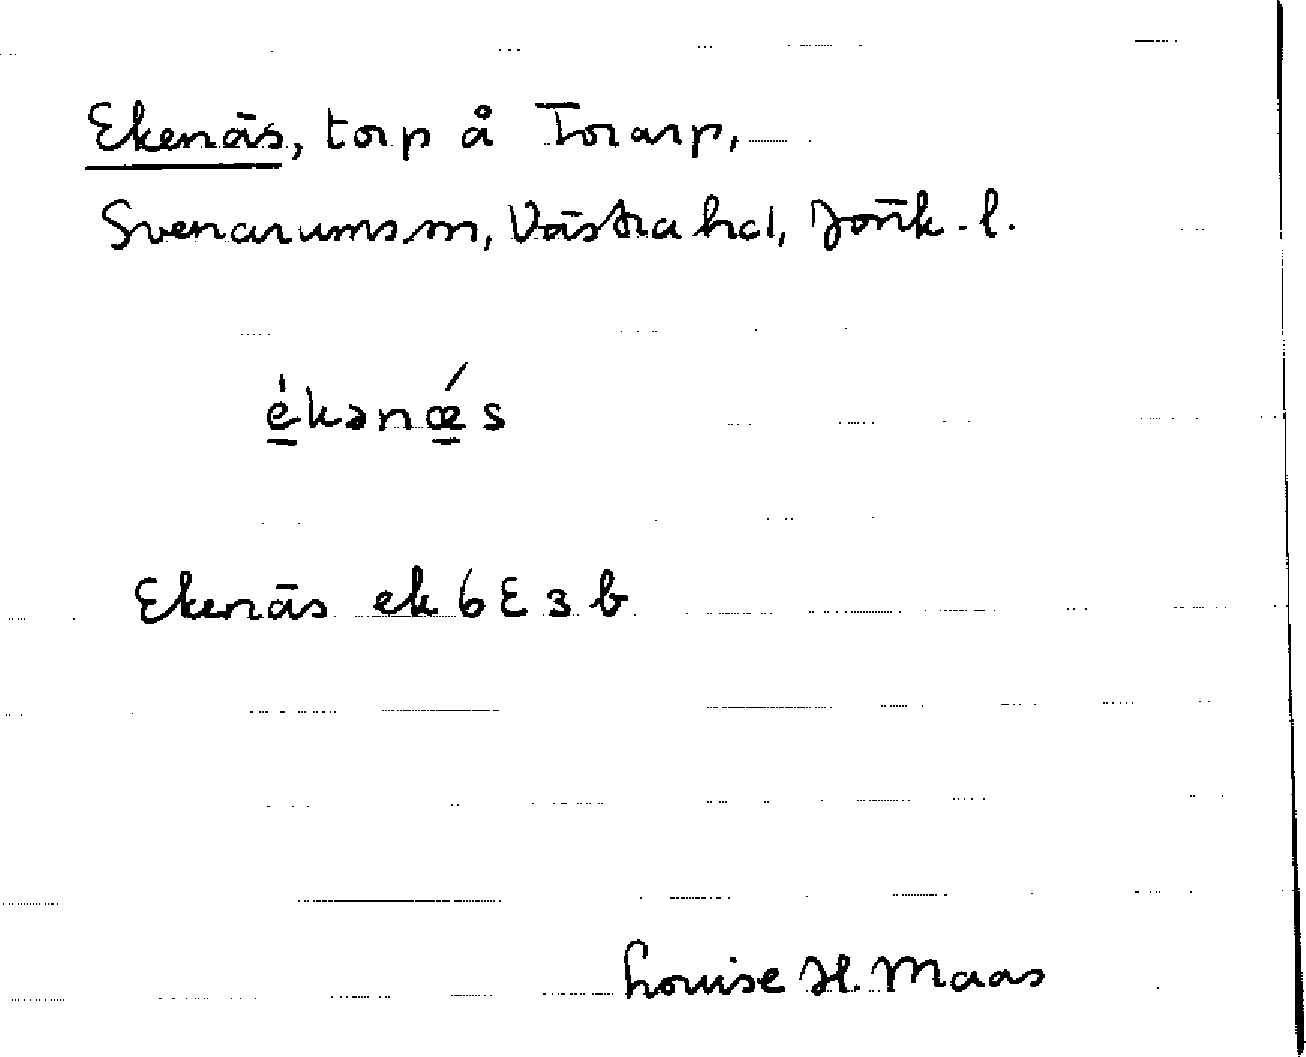 Ekenäs, torp å Torarp,
Svenarums sn, Västra hd, Jönk. l.
èkənǽs
Ekenäs ek 6 E 3 b
Louise H. Maas